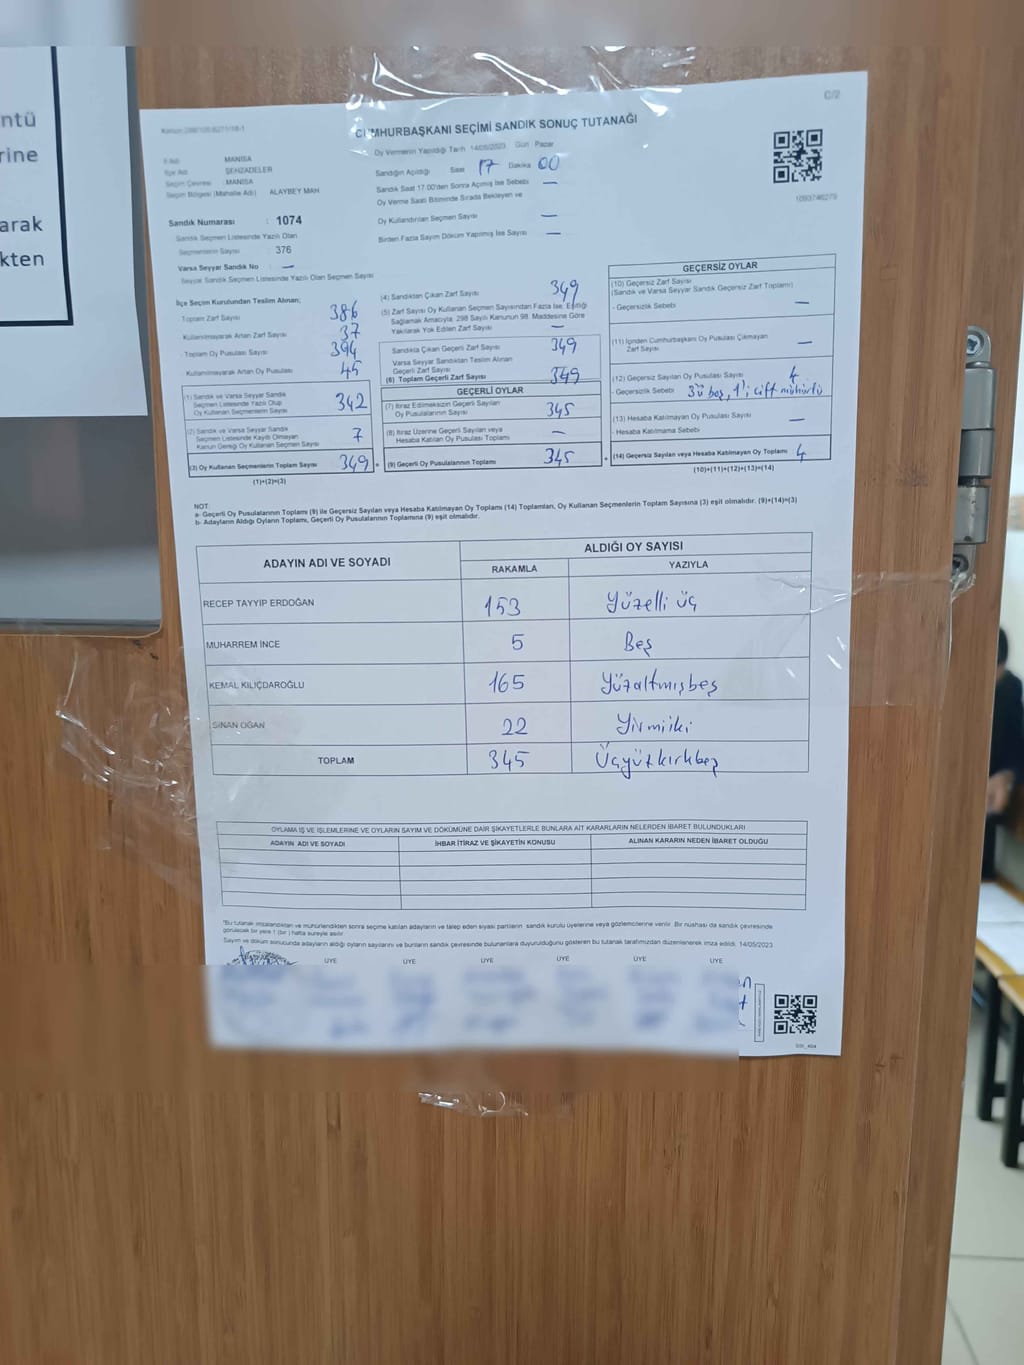 ntü
rine
arak
kten
C/2
CUMHURBAŞKANI SEÇİMİ SANDIK SONUÇ TUTANAĞI
Oy Vermenin Yapıldığı Tarih 14/05/2023 Gün Pazar
İl Adı MANİSA
İlçe Adı ŞEHZADELER
Seçim Çevresi MANİSA
Seçim Bölgesi (Mahalle Adı) ALAYBEY MAH
Sandık Numarası : 1074
Sandık Seçmen Listesinde Yazılı Olan
Seçmenlerin Sayısı : 376
Varsa Seyyar Sandık No : —
Seyyar Sandık Seçmen Listesinde Yazılı Olan Seçmen Sayısı
Sandığın Açıldığı Saat 17 Dakika 00
Sandık Saat 17.00'den Sonra Açılmış İse Sebebi —
Oy Verme Saati Bitiminde Sırada Bekleyen ve
Oy Kullandırılan Seçmen Sayısı —
Birden Fazla Sayım Döküm Yapılmış İse Sayısı —
1093746279
İlçe Seçim Kurulundan Teslim Alınan;
Toplam Zarf Sayısı 386
Kullanılmayarak Artan Zarf Sayısı 37
- Toplam Oy Pusulası Sayısı 394
Kullanılmayarak Artan Oy Pusulası 45
(1) Sandık ve Varsa Seyyar Sandık
Seçmen Listesinde Yazılı Olup
Oy Kullanan Seçmenlerin Sayısı 342
(2) Sandık ve Varsa Seyyar Sandık
Seçmen Listesinde Kaydı Olmayan
Kanun Gereği Oy Kullanan Seçmen Sayısı 7
(3) Oy Kullanan Seçmenlerin Toplam Sayısı 349
(1)+(2)=(3)
(4) Sandıktan Çıkan Zarf Sayısı 349
(5) Zarf Sayısı Oy Kullanan Seçmen Sayısından Fazla İse, Eşitliği
Sağlamak Amacıyla, 298 Sayılı Kanunun 98. Maddesine Göre
Yakılarak Yok Edilen Zarf Sayısı —
Sandıkta Çıkan Geçerli Zarf Sayısı 349
Varsa Seyyar Sandıktan Teslim Alınan
Geçerli Zarf Sayısı
(6) Toplam Geçerli Zarf Sayısı 349
GEÇERLİ OYLAR
(7) İtiraz Edilmeksizin Geçerli Sayılan
Oy Pusulalarının Sayısı 345
(8) İtiraz Üzerine Geçerli Sayılan veya
Hesaba Katılan Oy Pusulası Toplamı —
(9) Geçerli Oy Pusulalarının Toplamı 345
GEÇERSİZ OYLAR
(10) Geçersiz Zarf Sayısı
(Sandık ve Varsa Seyyar Sandık Geçersiz Zarf Toplamı)
- Geçersizlik Sebebi —
(11) İçinden Cumhurbaşkanı Oy Pusulası Çıkmayan
Zarf Sayısı —
(12) Geçersiz Sayılan Oy Pusulası Sayısı 4
- Geçersizlik Sebebi 3'ü boş, 1'i çift mühürlü
(13) Hesaba Katılmayan Oy Pusulası Sayısı —
- Hesaba Katılmama Sebebi
(14) Geçersiz Sayılan veya Hesaba Katılmayan Oy Toplamı 4
(10)+(11)+(12)+(13)=(14)
NOT:
a- Geçerli Oy Pusulalarının Toplamı (9) ile Geçersiz Sayılan veya Hesaba Katılmayan Oy Toplamı (14) Toplamları, Oy Kullanan Seçmenlerin Toplam Sayısına (3) eşit olmalıdır. (9)+(14)=(3)
b- Adayların Aldığı Oyların Toplamı, Geçerli Oy Pusulalarının Toplamına (9) eşit olmalıdır.
ADAYIN ADI VE SOYADI
ALDIĞI OY SAYISI
RAKAMLA YAZIYLA
RECEP TAYYİP ERDOĞAN 153 Yüzelli üç
MUHARREM İNCE 5 Beş
KEMAL KILIÇDAROĞLU 165 Yüzaltmışbeş
SİNAN OĞAN 22 Yirmiiki
TOPLAM 345 Üçyüzkırkbeş
OYLAMA İŞ VE İŞLEMLERİNE VE OYLARIN SAYIM VE DÖKÜMÜNE DAİR ŞİKAYETLERLE BUNLARA AİT KARARLARIN NELERDEN İBARET BULUNDUKLARI
ADAYIN ADI VE SOYADI İHBAR İTİRAZ VE ŞİKAYETİN KONUSU ALINAN KARARIN NEDEN İBARET OLDUĞU
*Bu tutanak imzalandıktan ve mühürlendikten sonra seçime katılan adayların ve talep eden siyasi partilerin sandık kurulu üyelerine veya gözlemcilerine verilir. Bir nüshası da sandık çevresinde
görülecek bir yere 1 (bir ) hafta süreyle asılır.
Sayım ve döküm sonucunda adayların aldığı oyların sayılarını ve bunların sandık çevresinde bulunanlara duyurulduğunu gösteren bu tutanak tarafımızdan düzenlenerek imza edildi. 14/05/2023
ÜYE ÜYE ÜYE ÜYE ÜYE ÜYE